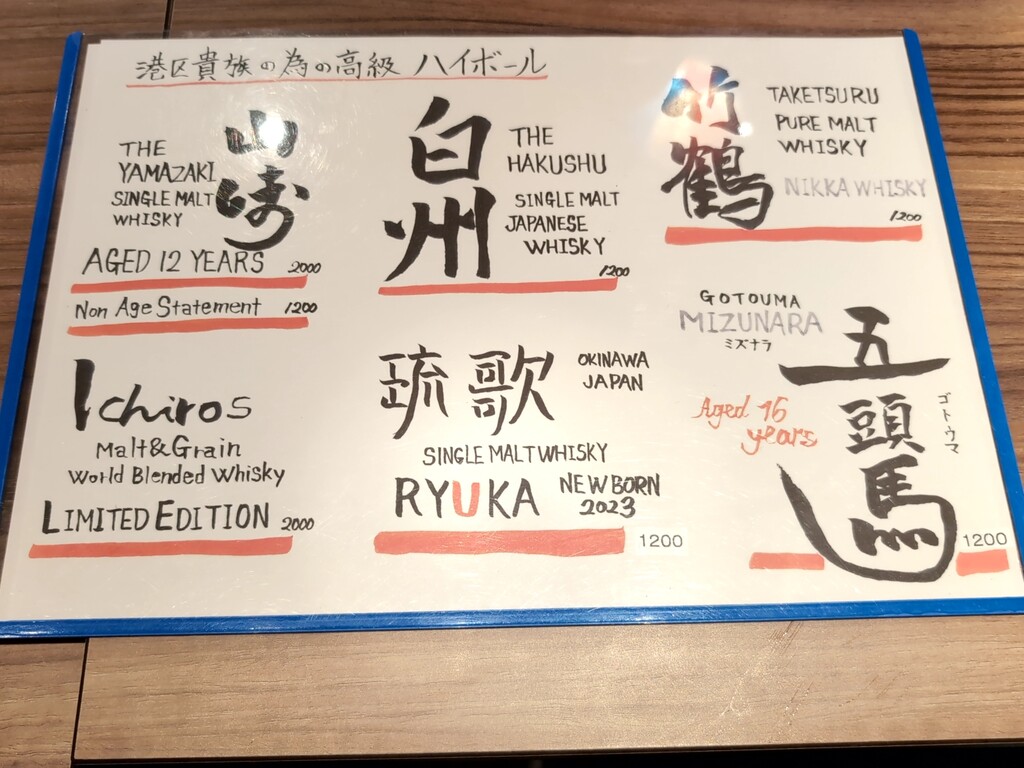 港区貴族の為の高級 ハイボール
山崎
THE
YAMAZAKI
SINGLE MALT
WHISKY
AGED 12 YEARS 2000
Non Age Statement 1200
白州
THE
HAKUSHU
SINGLE MALT
JAPANESE
WHISKY
1200
竹鶴
TAKETSURU
PURE MALT
WHISKY
NIKKA WHISKY
1200
Ichiros
Malt&Grain
World Blended Whisky
LIMITED EDITION 2000
琉歌
OKINAWA
JAPAN
SINGLE MALT WHISKY
RYUKA NEW BORN
2023
1200
GOTOUMA
MIZUNARA
ミズナラ
五頭馬
ゴトウマ
Aged 16
years
1200